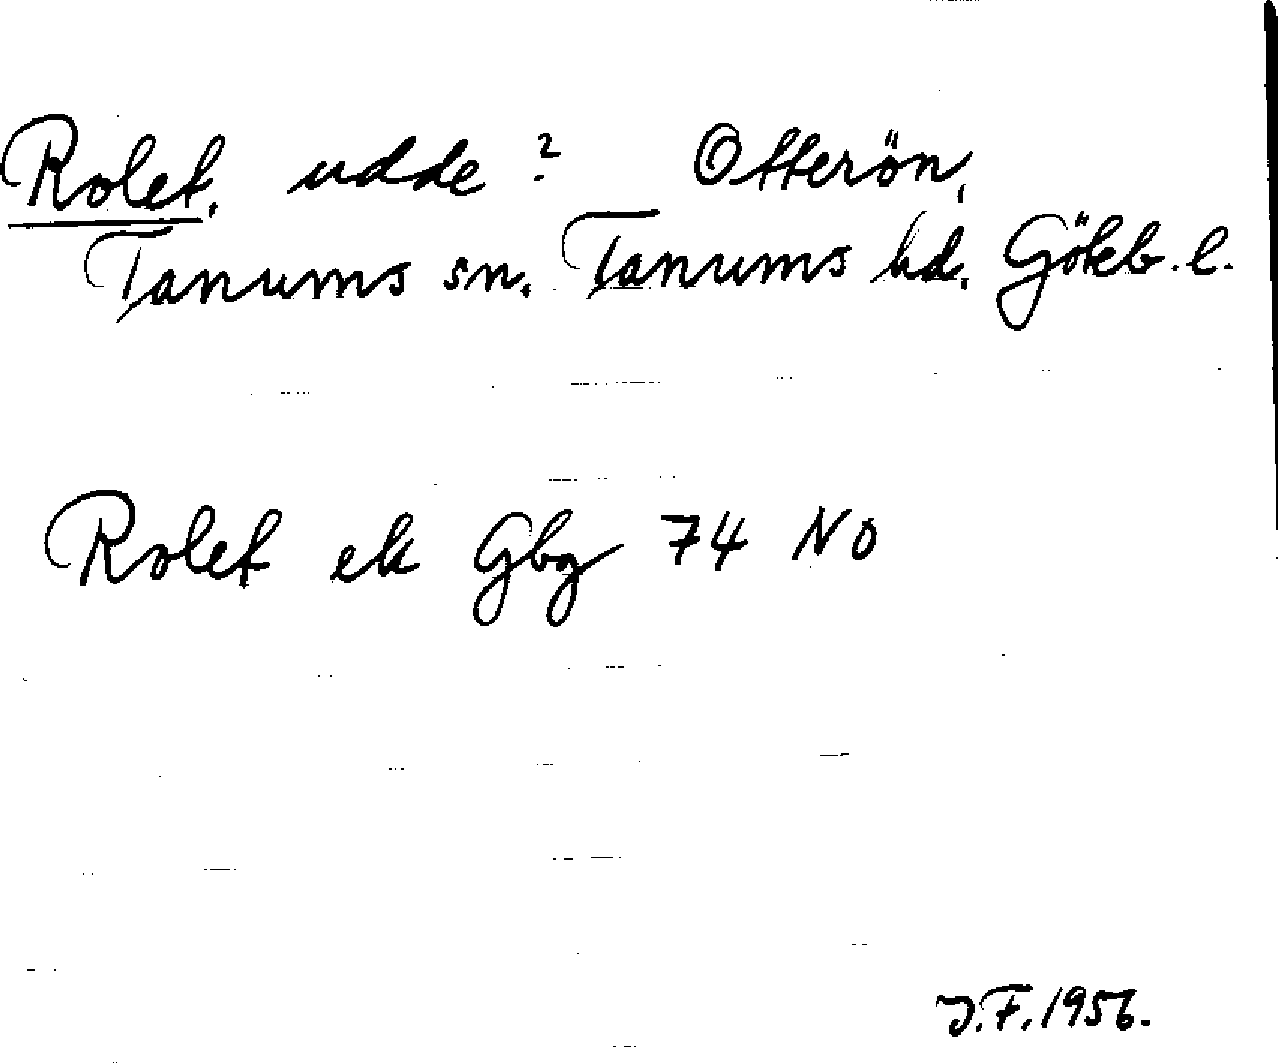 Rolet, udde? Otterön,
Tanums sn. Tanums hd. Göteb. l.
Rolet ek Gbg 74 NO
J.F. 1956.